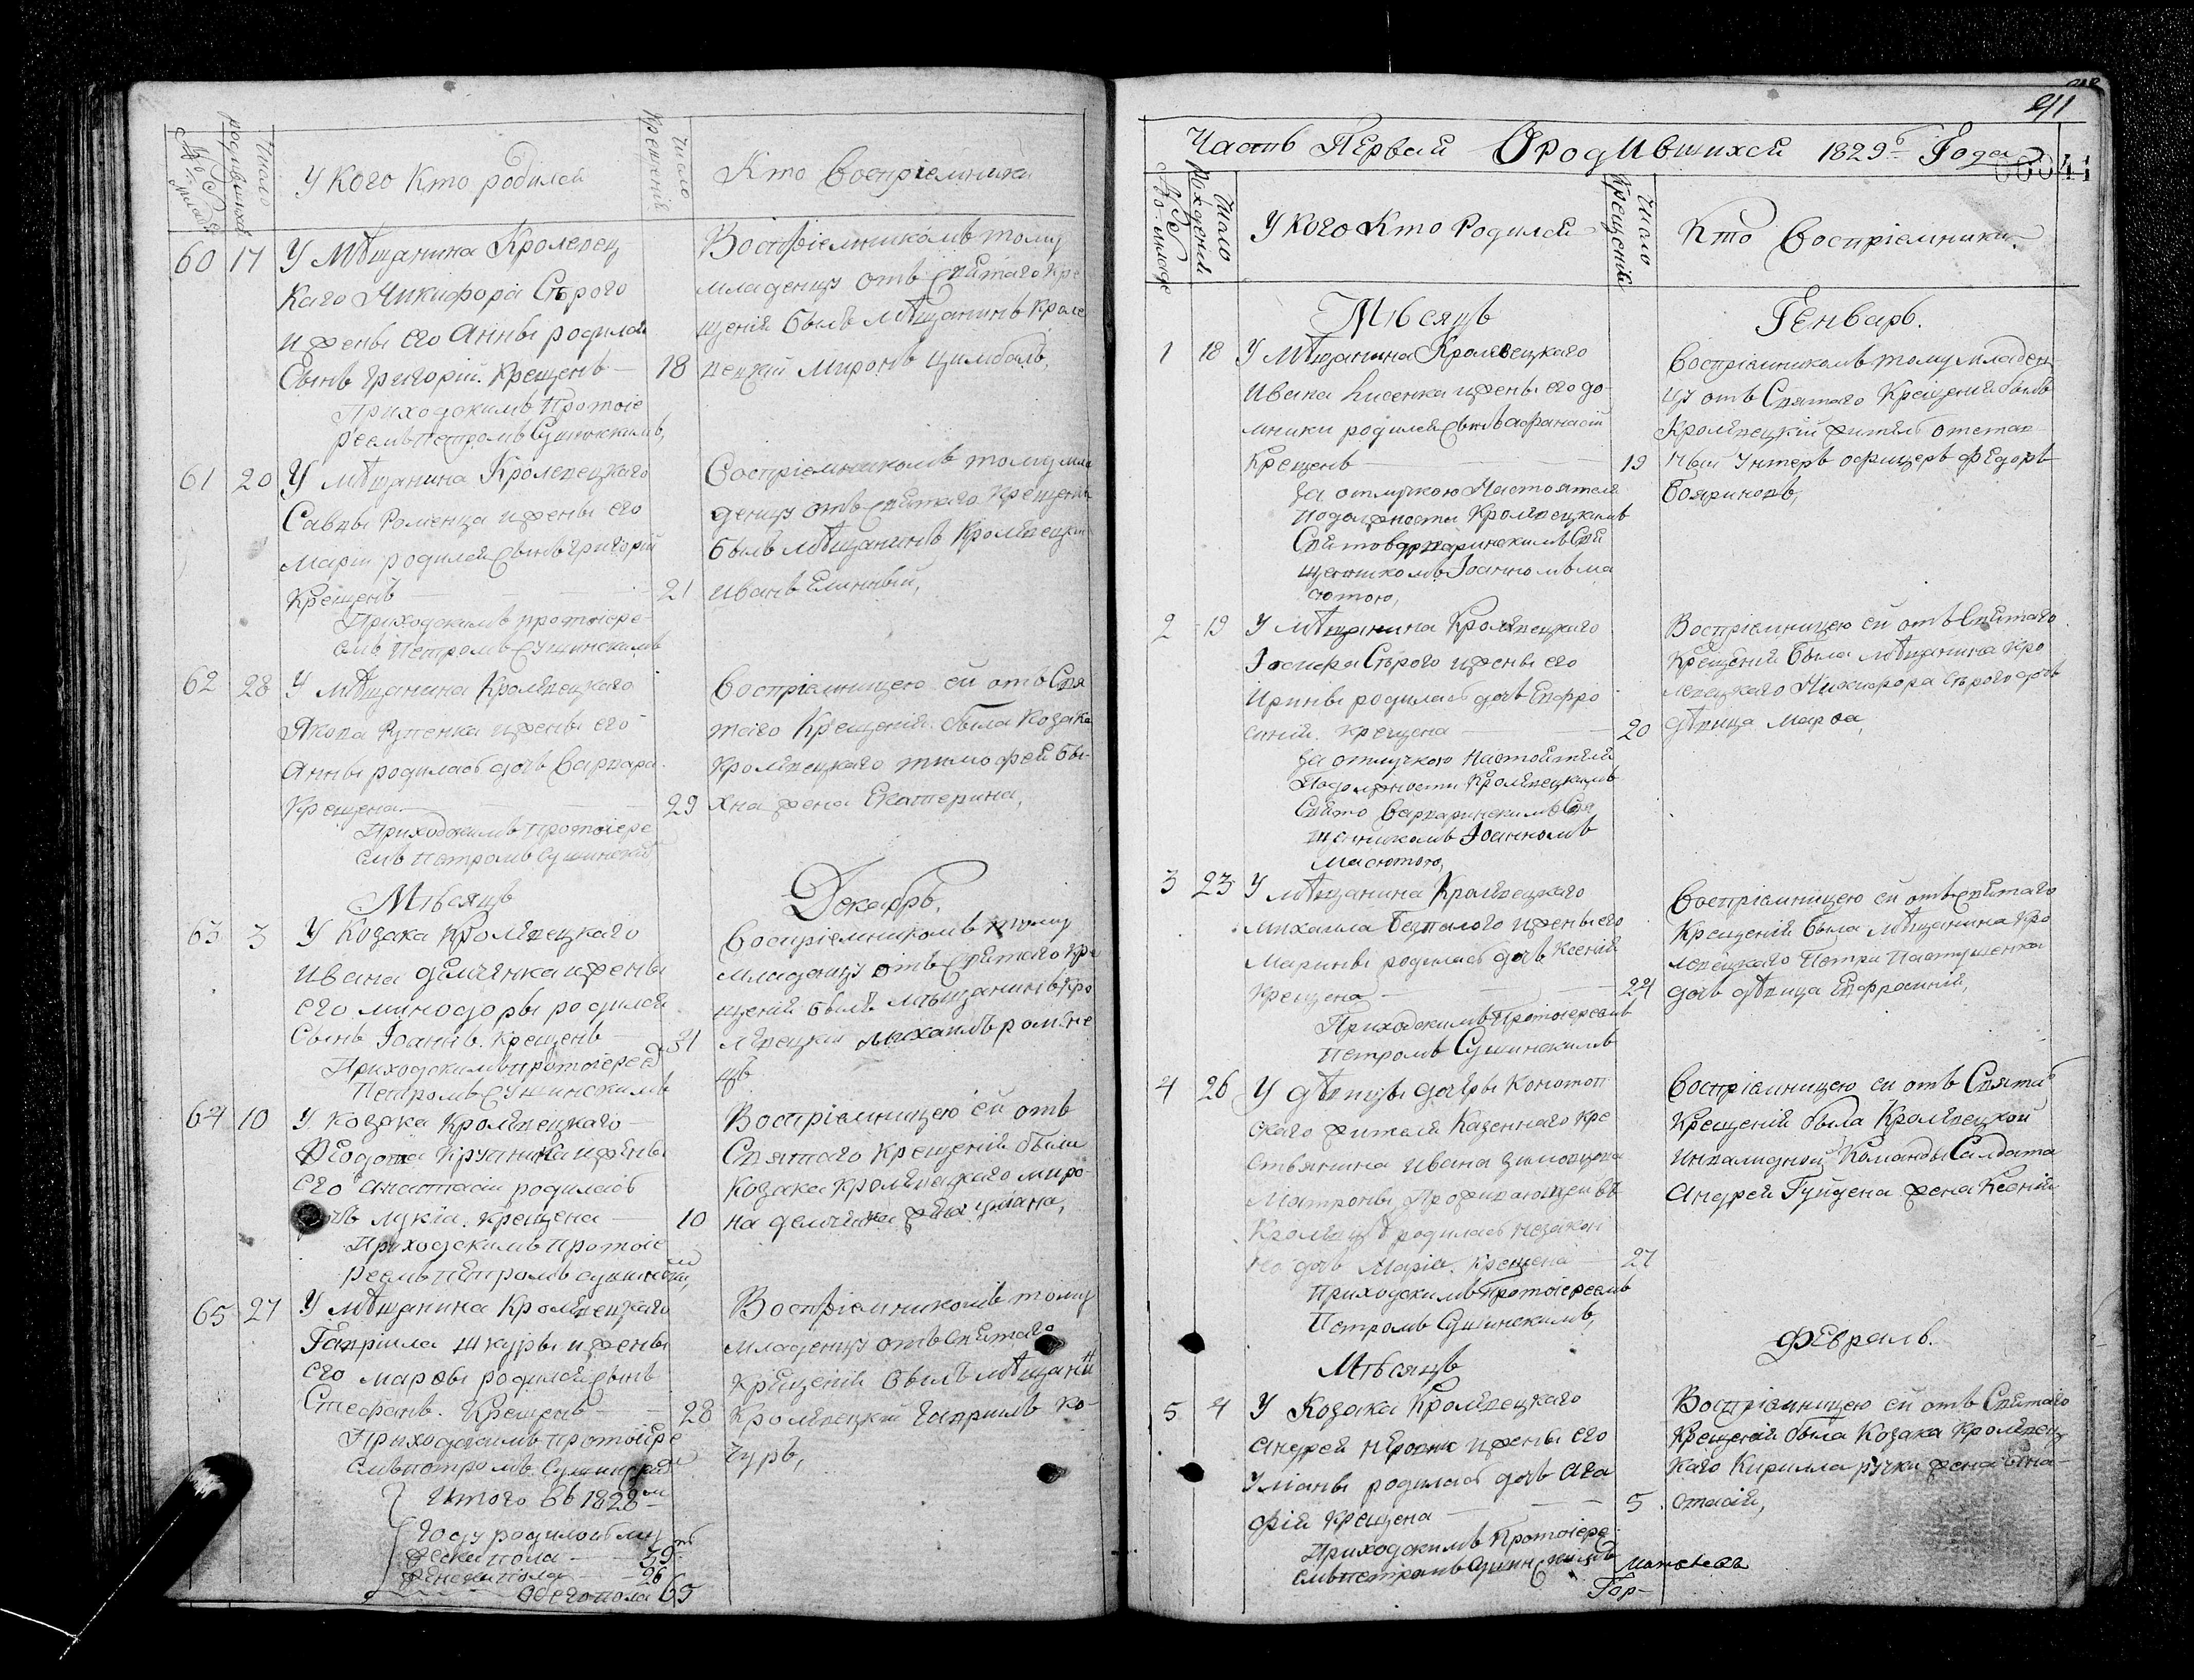 № младе
Число родившихся
У кого кто родился
Число Крещенія
Кто воспріемники
60 17 У Мѣщанина Кролевец
каго Никифора Сѣрого
и жены его Анны родился
Сынъ Григорій. Крещенъ — 18
Приходскимъ Протоіе
реемъ Петромъ Сушинскимъ,
Воспріемникомъ тому
младенцу отъ Святаго Кре
щенія былъ Мѣщанинъ Кроле
вецкій Миронъ Цимбалъ,
61 20 У мѣщанина Кролевецкаго
Саввы Роменца и жены его
Маріи родился Сынъ Григорій
Крещенъ — 21
Приходскимъ протоіере
емъ Петромъ Сушинскимъ
Воспріемникомъ тому мла
денцу отъ Святаго Крещенія
былъ мѣщанинъ Кролевецкій
Иванъ
62 28 У мѣщанина Кролевецкаго
Якова и жены его
Анны родилась дочь Варвара.
Крещена — 29
Приходскимъ Протоіере
емъ Петромъ Сушинскимъ
Воспріемницею ей отъ Свя
таго Крещенія была Козака
Кролевецкаго Тимофея Бы-
хна жена Екатерина,
Мѣсяцъ Декабрь.
63 3 У Козака Кролевецкаго
Ивана и жены
его Минодоры родился
Сынъ Іоаннъ. Крещенъ
Приходскимъ протоіерее
Петромъ Сушинскимъ
Воспріемникомъ тому
младенцу отъ Святаго Кре
щенія былъ Мѣщанинъ Кро
левецкій Михаилъ Ромене
цъ
64 10 У Козака Кролевецкаго
и жены
его Анастасіи родилась
дочь Лукія. Крещена — 10
Приходскимъ Протоіе
реемъ Петромъ Сушински
Воспріемницею ей отъ
Святаго Крещенія была
Козака Кролевецкаго Миро
на жена Уліана,
65 27 У мѣщанина Кролевецкаго
Гавріила Шкуры и жены
его Марѳы родился Сынъ
Стефанъ. Крещенъ — 28
Приходскимъ Протоіере
емъ Петромъ Сушинскимъ
Воспріемникомъ тому
младенцу отъ Святаго
Крещенія былъ мѣщанин
Кролевецкій Гавріилъ Ко-
чуръ,
Итого Въ 1828м
Году родилось му
жеска пола — 39
женска пола — 26
Обегопола 65
911
Часть Первая О родИвшихся 1829 Года
№ младе
Число Рожденія
У кого Кто Родился
Число Крещенія
Кто Воспріемники.
Мѣсяцъ Генварь.
1 18 У Мѣщанина Кролевецкаго
Ивана Лисенка и жены его до-
мники родился Сынъ Афанасій
Крещенъ — 19
За отлучкою Настоятеля
по должности Кролевецкимъ
Свято Варваринскимъ Свя
щенникомъ Іоанномъ Ма
сютою,
Воспріемникомъ тому младен
цу отъ Святаго Крещенія былъ
Кролевецкій житель отстав
ный Унтеръ офицеръ Федоръ
Бояриновъ,
2 19 У мѣщанина Кролевецкаго
Іосифа Сѣрого и жены его
Ирины родилась дочь Евфро
синія. Крещена — 20
За отлучкою Настоятеля
По должности Кролевецкимъ
Свято Варваринскимъ Свя
щенникомъ Іоанномъ
Масютою,
Воспріемницею ей отъ Святаго
Крещенія была мѣщанина Кро
левецкаго Никифора Сѣрого дочь
дѣвица Марѳа,
3 23 У мѣщанина Кролевецкаго
Михаила Безпалого и жены его
Марины родилась дочь Ксенія
Крещена — 24
Приходскимъ Протоіереемъ
Петромъ Сушинскимъ
Воспріемницею ей отъ Святаго
Крещенія была Мѣщанина Кро
левецкаго Петра Пастушенка
дочь дѣвица Евфросинія,
4 26 У дѣвицы дочери Конотоп
скаго жителя Казеннаго кре
стьянина Ивана
Матроны Проживающей въ
Кролевцѣ родилась незакон
но дочь Марія. Крещена — 27
Приходскимъ Протоіереемъ
Петромъ Сушинскимъ,
Воспріемницею ей отъ Святаго
Крещенія была Кролевецкой
Инвалидной Команды Салдата
Андрея жена Ксенія
Мѣсяцъ Февраль.
5 4 У Козака Кролевецкаго
Андрея и жены его
Уліаны родилась дочь Ага
фія Крещена — 5
Приходскимъ Протоіере
емъ Петромъ Сушинскимъ
Воспріемницею ей отъ Святаго
Крещенія была Козака Кролевец
каго Кирилла Ручки жена Ана-
стасія,